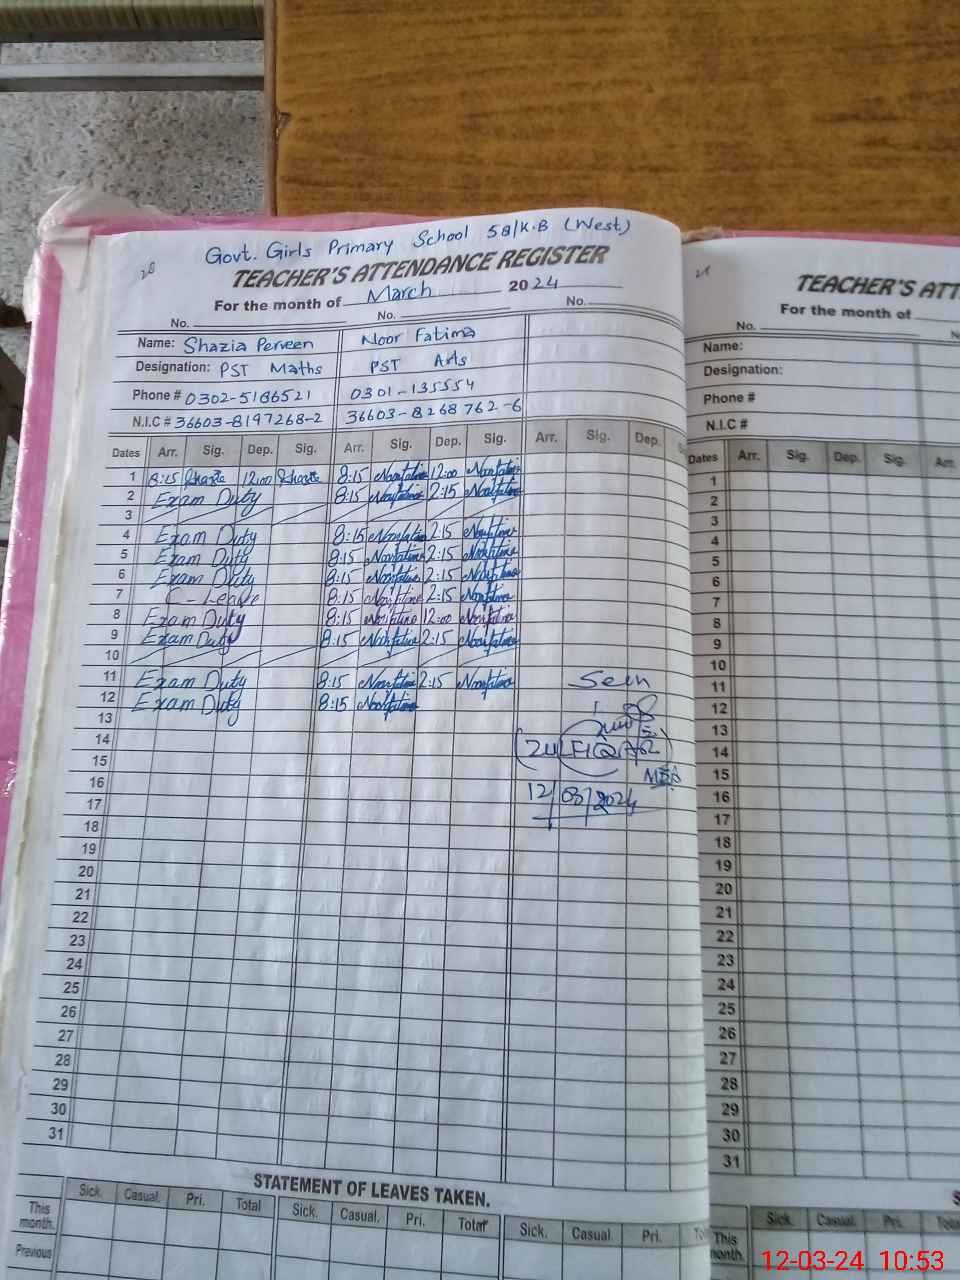 Govt. Girls Primary School 58/K.B (West)
28
TEACHER'S ATTENDANCE REGISTER
For the month of March 2024
No. No. No.
Name: Shazia Perveen Noor Fatima
Designation: PST Maths PST Arts
Phone # 0302-5186521 0301-135554
N.I.C # 36603-8197268-2 36603-8268762-6
Dates Arr. Sig. Dep. Sig. Arr. Sig. Dep. Sig. Arr. Sig. Dep.
1 8:15 Shazia 12:00 Shazia 8:15 Noorfatima 12:00 Noorfatima
2 Exam Duty 8:15 Noorfatima 2:15 Noorfatima
3
4 Exam Duty 8:15 Noorfatima 2:15 Noorfatima
5 Exam Duty 8:15 Noorfatima 2:15 Noorfatima
6 Exam Duty 8:15 Noorfatima 2:15 Noorfatima
7 C-Leave 8:15 Noorfatima 2:15 Noorfatima
8 Exam Duty 8:15 Noorfatima 12:00 Noorfatima
9 Exam Duty 8:15 Noorfatima 2:15 Noorfatima
10
11 Exam Duty 8:15 Noorfatima 2:15 Noorfatima
12 Exam Duty 8:15 Noorfatima
13
14
15
16
17
18
19
20
21
22
23
24
25
26
27
28
29
30
31
Seen
(ZULFIQAR)
MEA
12/03/2024
STATEMENT OF LEAVES TAKEN.
Sick. Casual. Pri. Total Sick. Casual. Pri. Total Sick. Casual. Pri.
This month.
Previous
TEACHER'S ATT
For the month of
No.
Name:
Designation:
Phone #
N.I.C #
Dates Arr. Sig. Dep. Sig. Arr.
1
2
3
4
5
6
7
8
9
10
11
12
13
14
15
16
17
18
19
20
21
22
23
24
25
26
27
28
29
30
31
Sick. Casual. Pri.
This month.
12-03-24 10:53